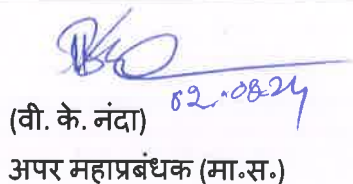 02.08.24
(वी. के. नंदा)
अपर महाप्रबंधक (मा॰स॰)